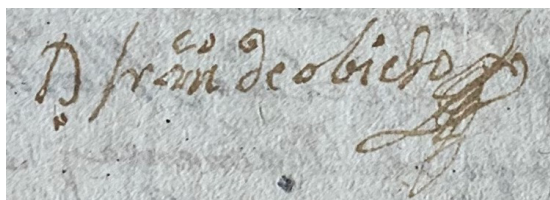 D franco de obiedo